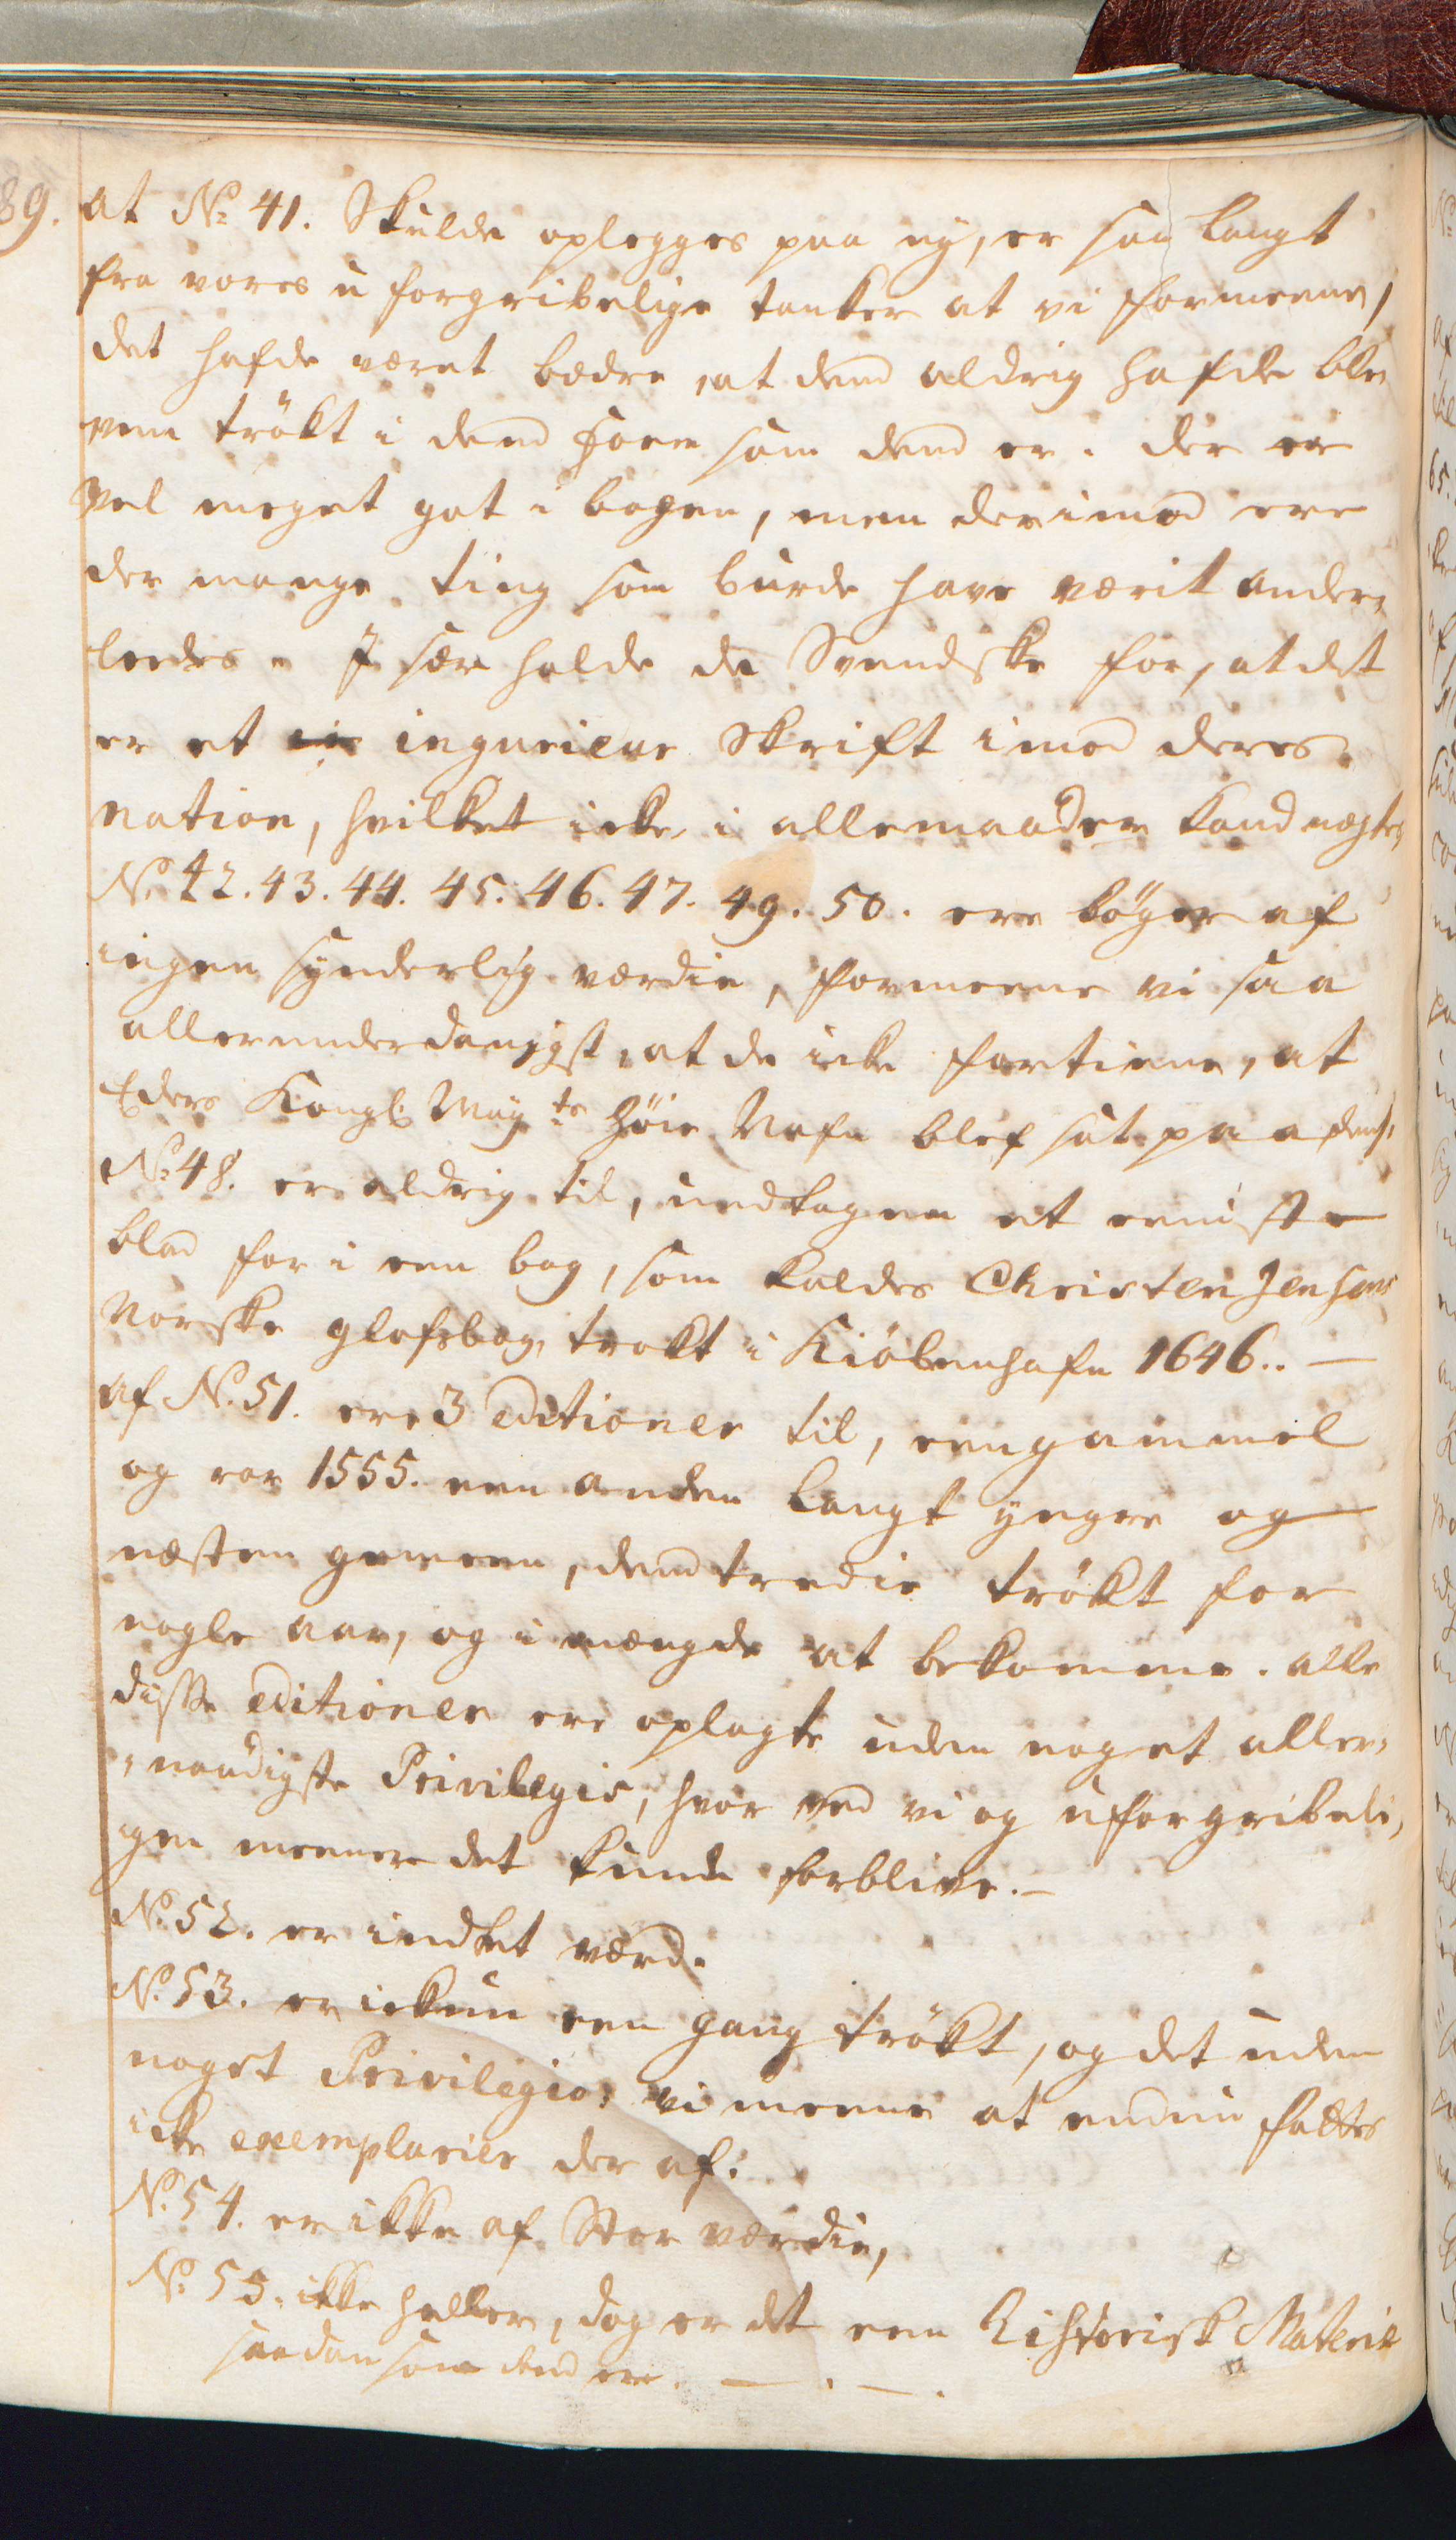 89.
at No 41. Skulde oplegges paa ny, er saa langt
fra vores u forgribelige tanker at vi formeene,
det hafde været bædre, at dend aldrig hafde ble
ven trökt i dend form som dend er. der er
vel meget got i bogen, men derimod ere
der mange ting som burde have værit ander,
leedes. I sær holde de Svendske for, at det
er et injurieus Skrift imod deres
nation, hvilket icke i allemaader kand nægtes
No. 42. 43. 44. 45. 46. 47. 49. 50. ere bøger af
ingen synderlig værdie, formeene vi saa
allerunderdanigst, at de icke fortiene, at
Eders Kongl. Mayts höie Nafn blef sat paa dem.
No. 48. er aldrig til, undtagen et eeniste
blad for i een bog, som kaldes Christen Jensens
Norske glosebog trökt i Kiöbenhafn 1646.. —
af No. 51. ere 3 editioner til, een gammel
og rar 1555. een anden langt yngre og
næsten gemeen, dend tredie trökt for
nogle aar, og i mængde at bekomme. alle
disse editioner ere oplagte uden noget aller,
naadigste Privilegie, hvor ved vi og uforgribeli,
gen meener det kunde forblive. —
No. 52. er indtet værd.
No. 53. er ickun een gang trökt, og det uden
noget Privilegio: vi meene at endnu fattes
icke exemplarier der af.
No. 54. er ikke af Stor værdie,
No. 55. ikke heller, dog er det een Historisk Materie
saadan som dend er. — . — .